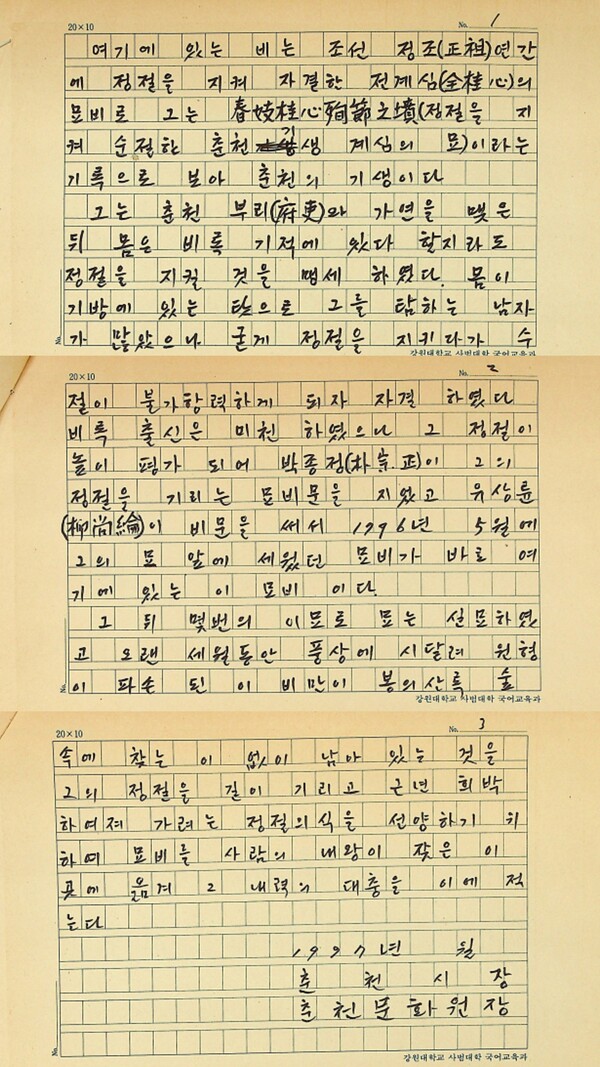 20×10
No. 1
여기에 있는 비는 조선 정조(正祖)연간
에 정절을 지켜 자결한 전계심(全桂心)의
묘비로 그는 春妓桂心殉節之墳(정절을 지
켜 순절한 춘천 기생 계심의 묘)이라는
기록으로 보아 춘천의 기생이다
그는 춘천 부리(府吏)와 가연을 맺은
뒤 몸은 비록 기적에 있다 할지라도
정절을 지킬 것을 맹세 하였다. 몸이
기방에 있는 탓으로 그를 탐하는 남자
가 많았으나 굳게 정절을 지키다가 수
No.
강원대학교 사범대학 국어교육과
20×10
No. 2
절이 불가항력하게 되자 자결 하였다
비록 출신은 미천 하였으나 그 정절이
높이 평가 되어 박종정(朴宗正)이 그의
정절을 기리는 묘비문을 지었고 유상륜
(柳尚綸)이 비문을 써서 1796년 5월에
그의 묘 앞에 세웠던 묘비가 바로 여
기에 있는 이 묘비 이다.
그 뒤 몇번의 이묘로 묘는 실묘하였
고 오랜 세월동안 풍상에 시달려 원형
이 파손 된 이 비만이 봉의산록 숲
No.
강원대학교 사범대학 국어교육과
20×10
No. 3
속에 찾는 이 없이 남아 있는 것을
그의 정절을 길이 기리고 근년 희박
하여져 가려는 정절의식을 선양하기 위
하여 묘비를 사람의 내왕이 잦은 이
곳에 옮겨 그 내력의 대충을 이에 적
는다
1997년 월
춘 천 시 장
춘천문화원장
No.
강원대학교 사범대학 국어교육과